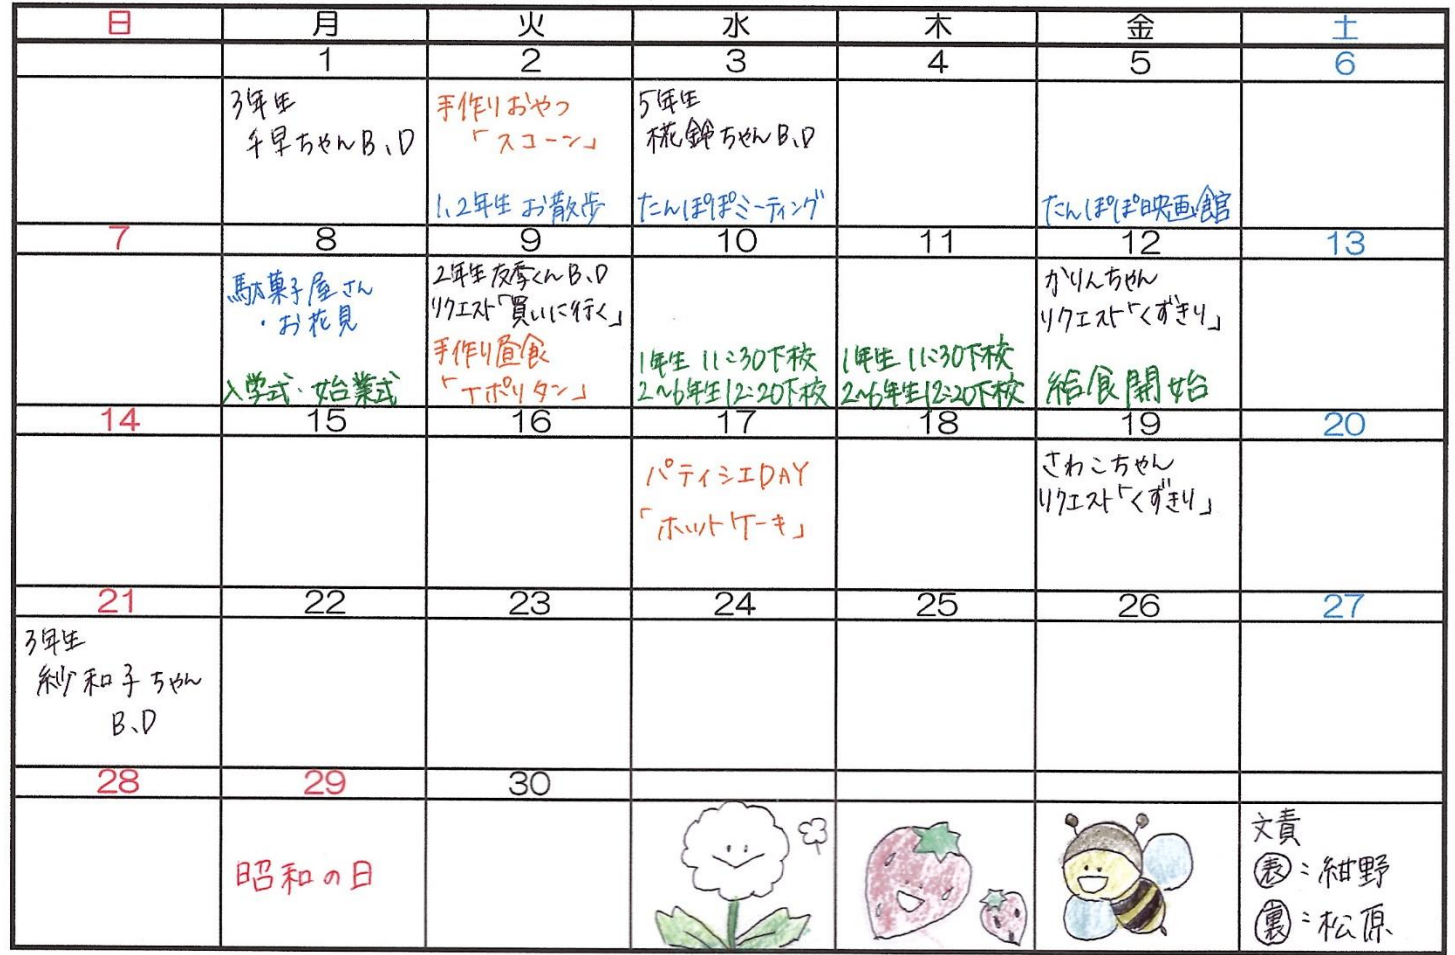 日 月 火 水 木 金 土
1 2 3 4 5 6
3年生
千早ちゃんB、D
手作りおやつ
「スコーン」
1、2年生 お散歩
5年生
椛鈴ちゃんB、D
たんぽぽミーティング
たんぽぽ映画館
7 8 9 10 11 12 13
駄菓子屋さん
・お花見
入学式・始業式
2年生友季くんB、D
リクエスト「買いに行く」
手作り昼食
「ナポリタン」
1年生 11:30下校
2〜6年生12:20下校
1年生 11:30下校
2〜6年生12:20下校
かりんちゃん
リクエスト「くずきり」
給食開始
14 15 16 17 18 19 20
パティシエDAY
「ホットケーキ」
さわこちゃん
リクエスト「くずきり」
21 22 23 24 25 26 27
3年生
紗和子ちゃん
B、D
28 29 30
昭和の日
文責
表:紺野
裏:松原